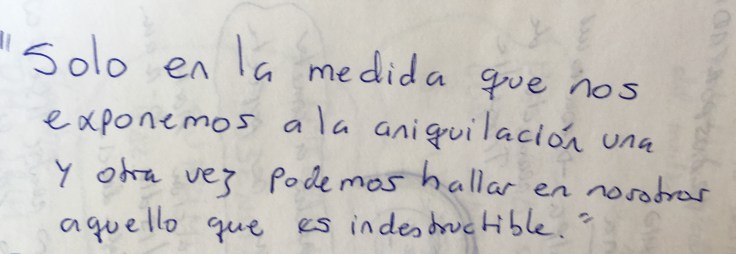 "Solo en la medida que nos
exponemos a la aniquilación una
y otra vez podemos hallar en nosotros
aquello que es indestructible."